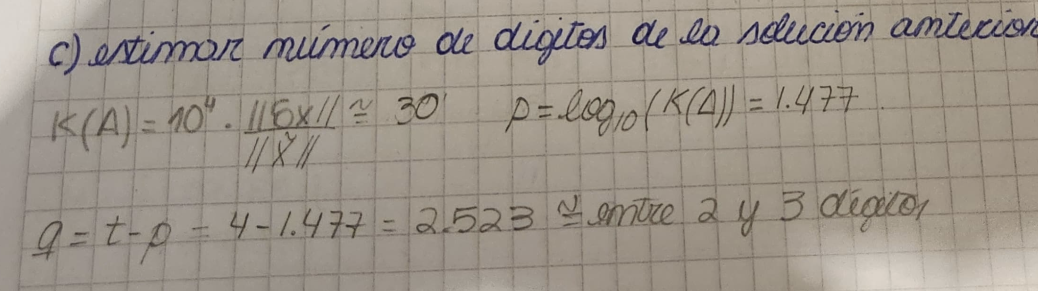 c) estimar número de digitos de la solución anterior
K(A) = 10⁴ · ||δx|| / ||x̃|| ≅ 30 p = log₁₀(K(A)) = 1.477
q = t - p = 4 - 1.477 = 2.523 ≅ entre 2 y 3 digitos